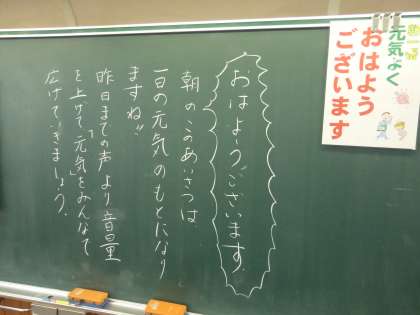 おはようございます。
朝のこのあいさつは
一日の元気のもとになり
ますね!!
昨日までの声より音量
を上げて「元気」をみんなで
広げていきましょう。
元気よく
おはよう
ございます